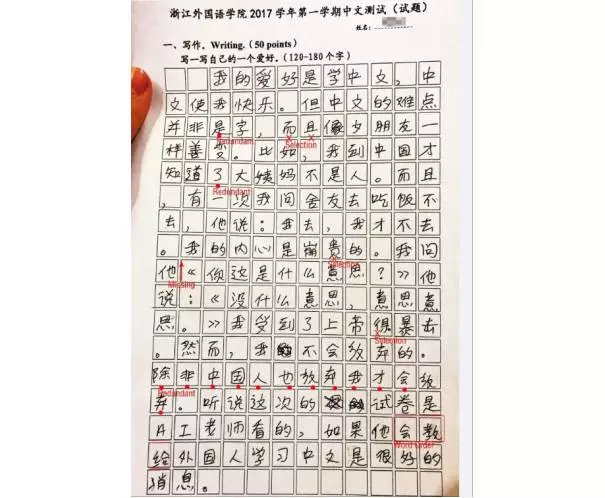 浙江外国语学院 2017 学年第一学期中文测试（试题）
姓名：
一、写作。Writing.（50 points）
写一写自己的一个爱好。（120-180 个字）
我的爱好是学中文，中
文使我快乐。但中文的难点
并非是字，而且像女朋友一
Redundant Selection
样善变。比如，我到中国才
知道了大姨妈不是人。而且
Redundant
，有一次我问舍友去吃饭不
去，他说：我去，我才不去
。我的内心是崩贵的。我问
Selection
他《你这是什么意思？》他
Missing
说：《没什么意思，意思意
思。》我受到了上帝很暴击
Selection
。然而，我不会放弃的。
除非中国人也放弃我才会放
Redundant
弃。听说这次的试卷是
AI老师看的，如果他会教
Word order
给外国人学习中文是很好的
消息。